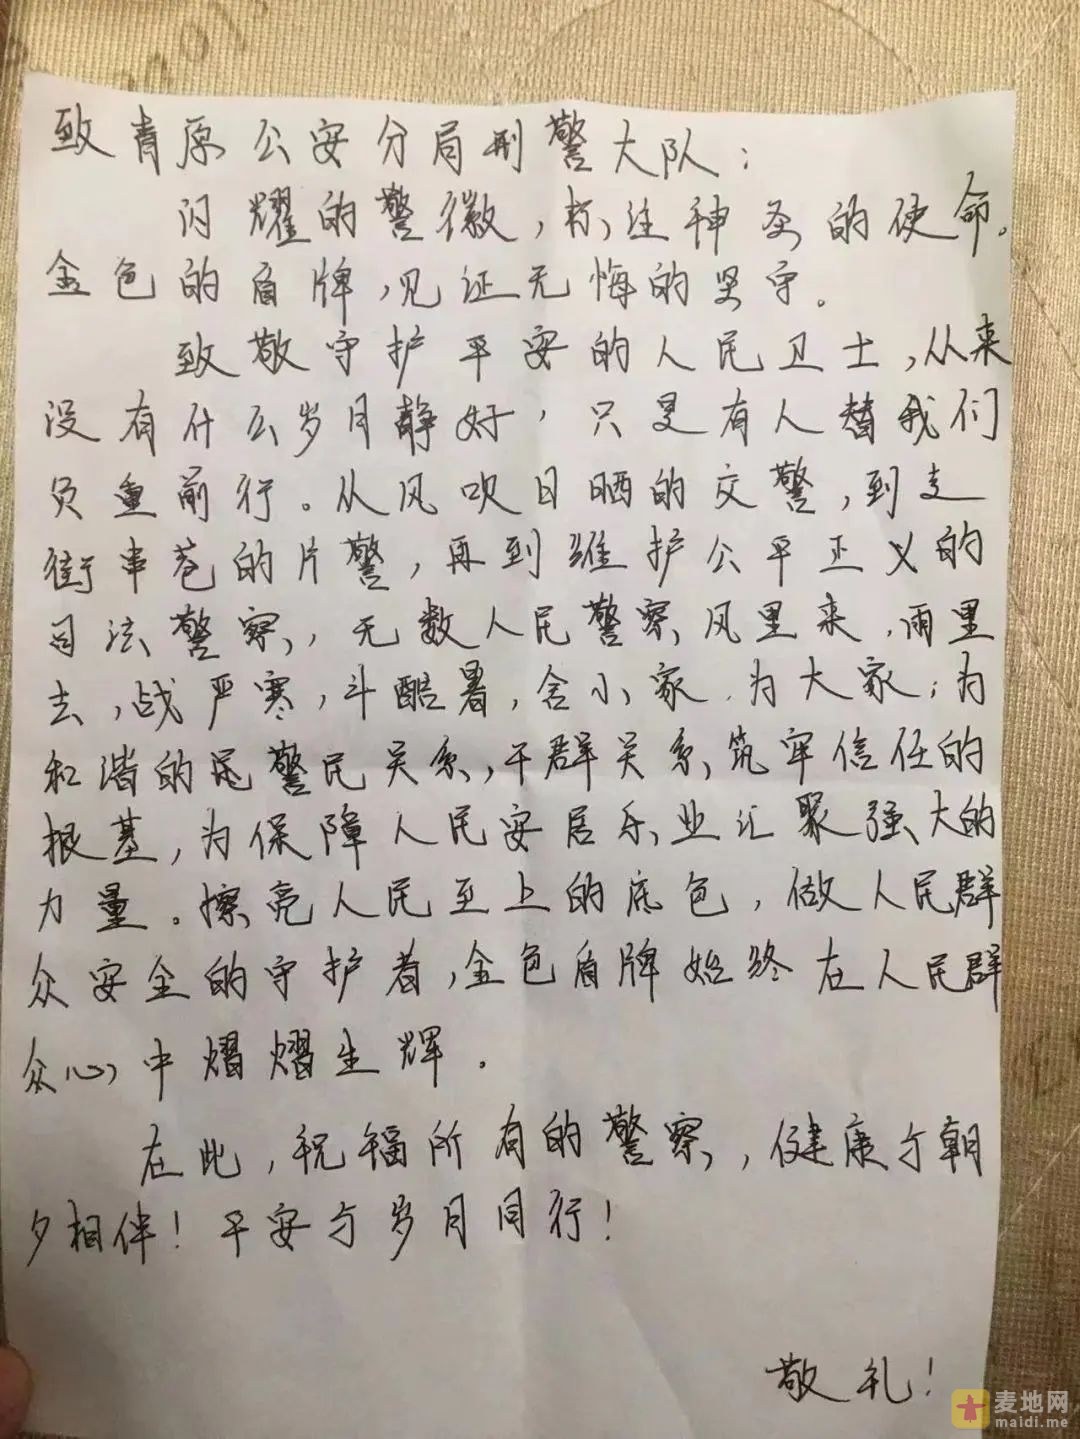 致青原公安分局刑警大队：
闪耀的警徽，标注神圣的使命。
金色的盾牌，见证无悔的坚守。
致敬守护平安的人民卫士，从来
没有什么岁月静好，只是有人替我们
负重前行。从风吹日晒的交警，到走
街串巷的片警，再到维护公平正义的
司法警察，无数人民警察风里来，雨里
去，战严寒，斗酷暑，舍小家，为大家；为
和谐的民警民关系，干群关系筑牢信任的
根基，为保障人民安居乐业汇聚强大的
力量。擦亮人民至上的底色，做人民群
众安全的守护者，金色盾牌始终在人民群
众心中熠熠生辉。
在此，祝福所有的警察，健康与朝
夕相伴！平安与岁月同行！
敬礼！
麦地网
maldi.me